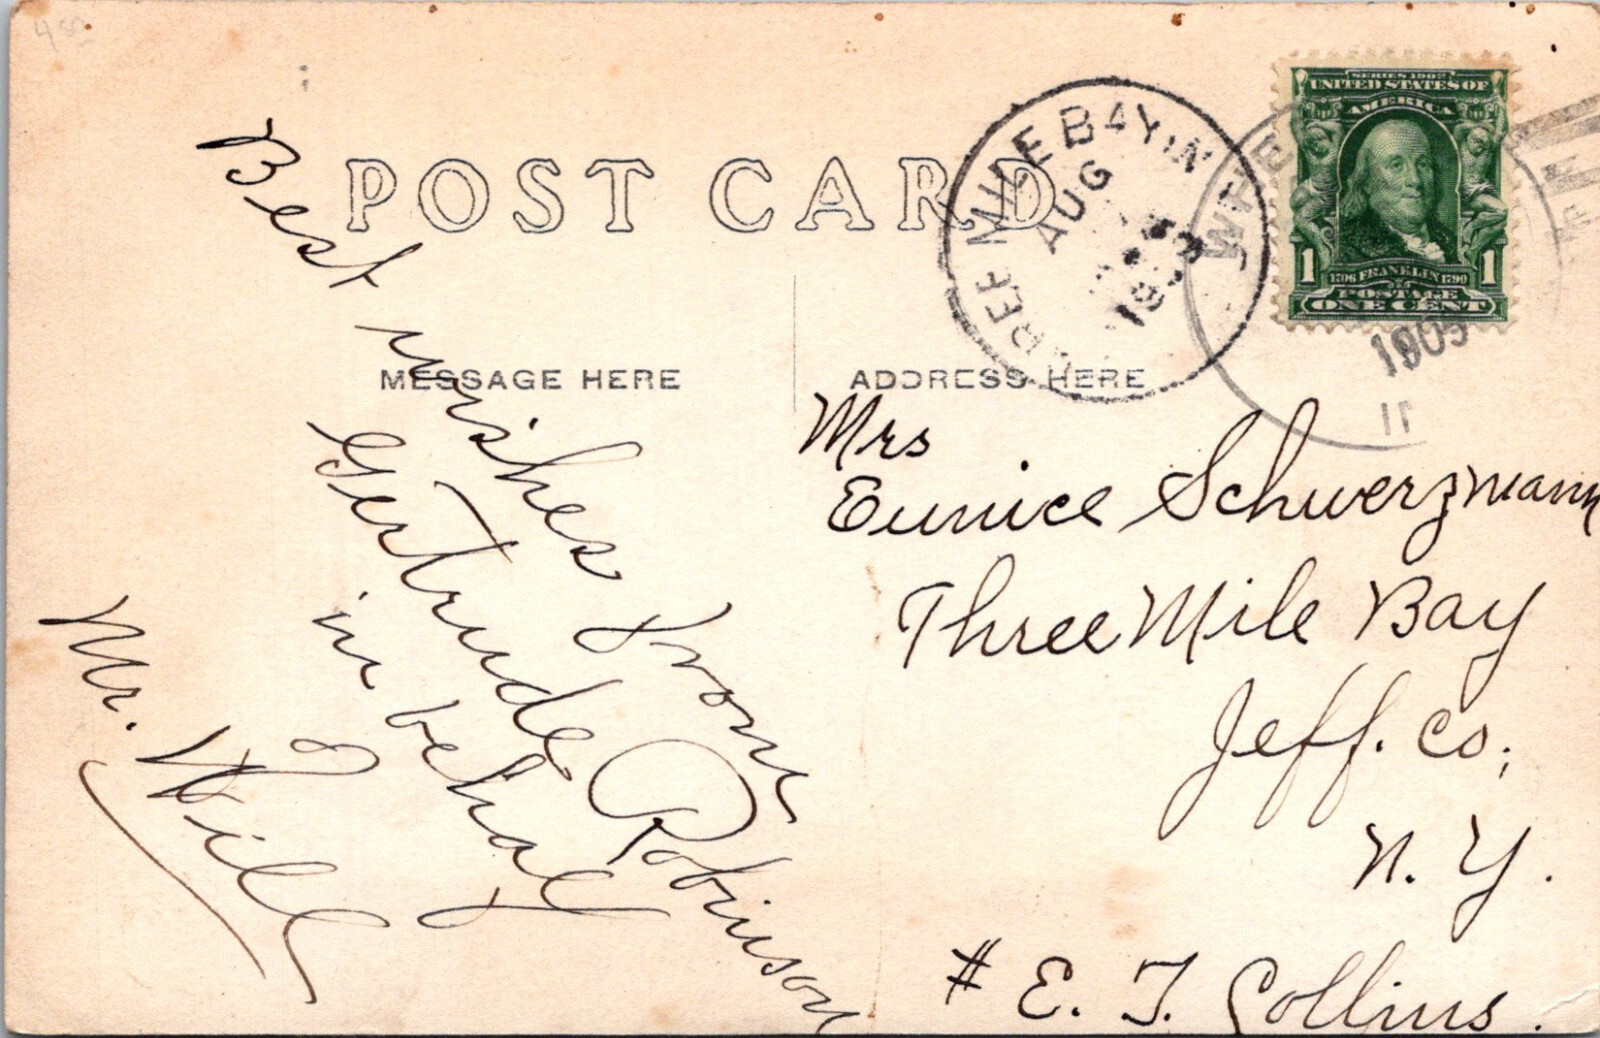 450
POST CARD
THREE MILE BAY, N
AUG
3
19
WHE
1909
SERIES 1902
UNITED STATES OF
AMERICA
1 1706 FRANKLIN 1790 1
POSTAGE
ONE CENT
MESSAGE HERE
ADDRESS HERE
Best wishes from
Gertrude Robinson
in behalf
of
Mr. Will
Mrs
Eunice Schwerzmann
Three Mile Bay
Jeff. Co,
N. Y.
# E. T. Collins.